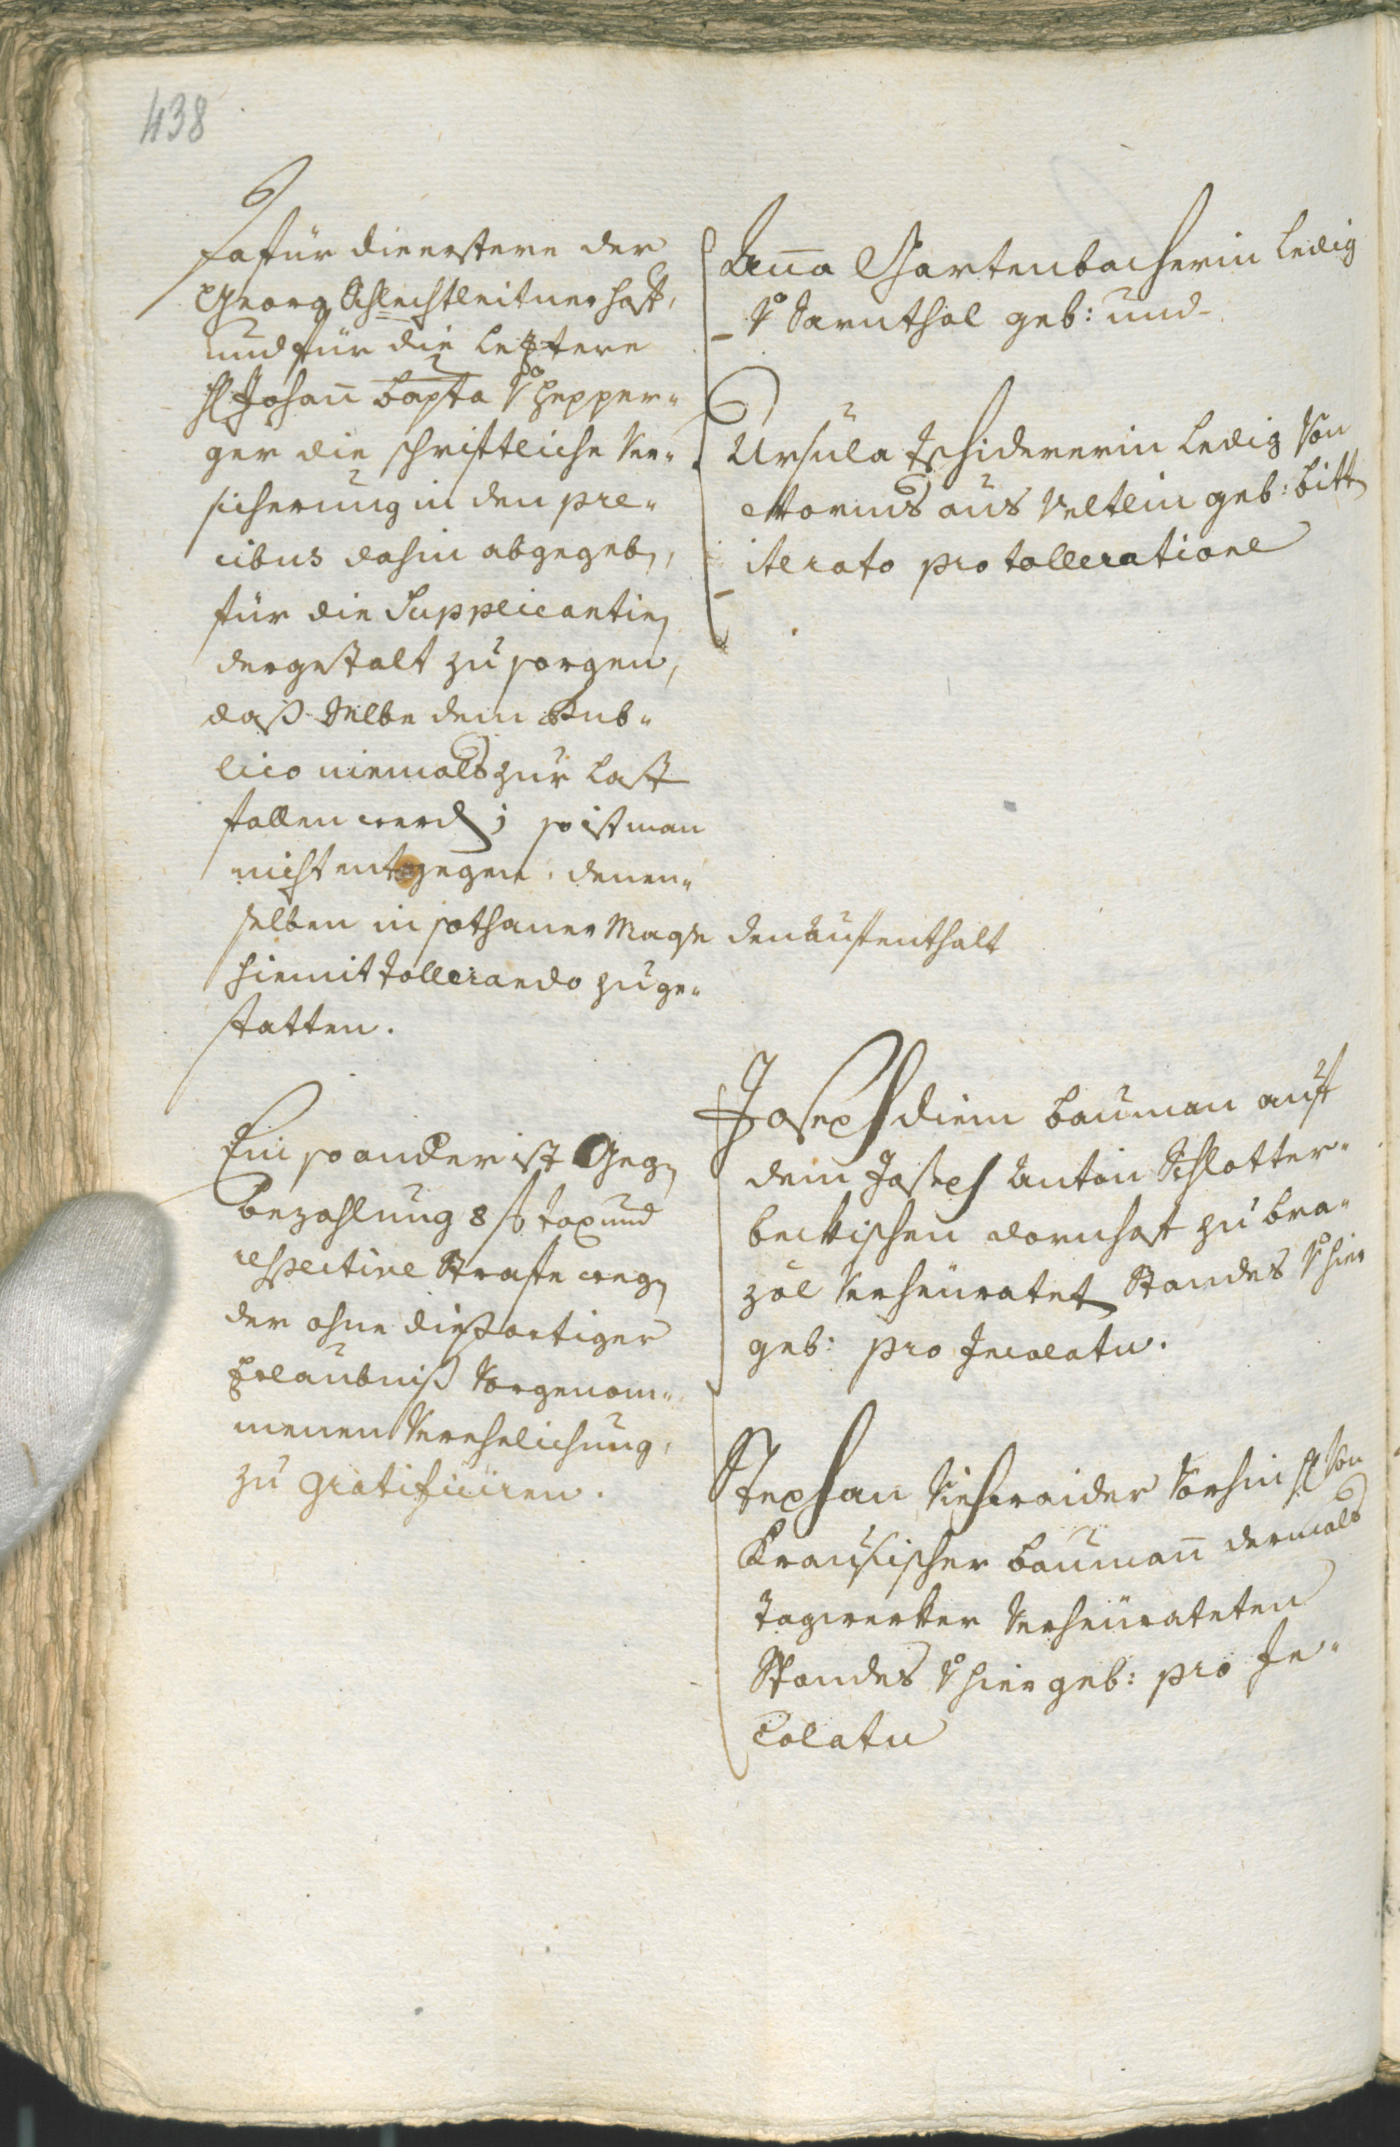 438
Dafür die erstere der
Georg Schlechtleitner hafft,
und für die leztere
H Johañ Bapta v Hepper„
ger die schrifftliche Ver„
sicherung in den pre„
cibus dahin abgegeb,
für die Supplicantin
dergestalt zu sorgen,
daß selbe dem Pub„
lico niemals zur Last
fallen werd; so ist man
nicht entgegen denen„
selben in sothaner Maße den Aufenthalt
hiemit tollerando zu ge„
statten.
Añna Gartenbacherin ledig
v Sarnthal geb: und
Ursula Tschidererin ledig von
aus Veltlein geb: bitt
iterato pro tolleratione
Ein so ander ist Geg
Bezahlung 8 f tax und
respective Strafe weg
der ohne dießortiger
Erlaubniß vorgenom„
menen Verehelichung,
zu gratificiren.
Joseph diem bauman auf
dem Joseph Anton Schlotter„
beckischen Dornhof zu bra„
zöl Verheuratet Standes v hier
geb: pro Incolatu.
Stephan Viehweider Vorhin H von
Krausischer baumañ dermals
Tagwerker Verheürateten
Standes v hier geb: pro In„
colatu